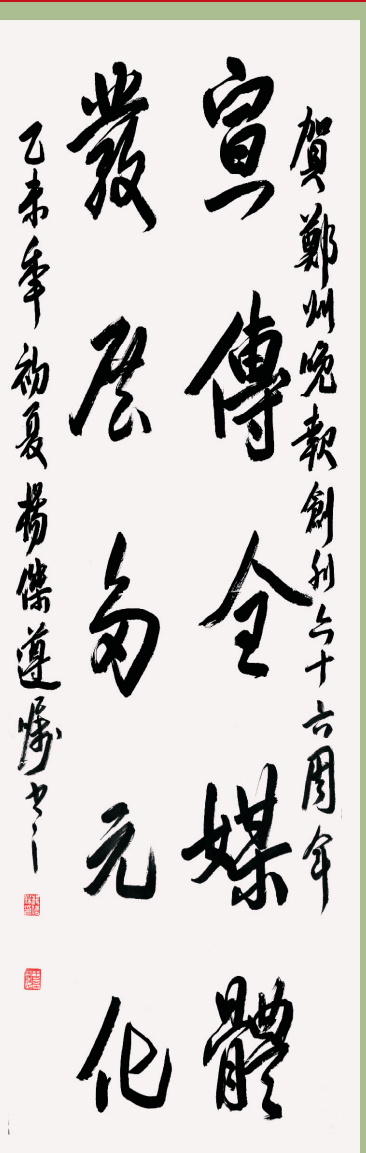 賀鄭州晚報創刊六十六周年
宣傳全媒體
發展多元化
乙未年初夏楊傑遵嘱书之